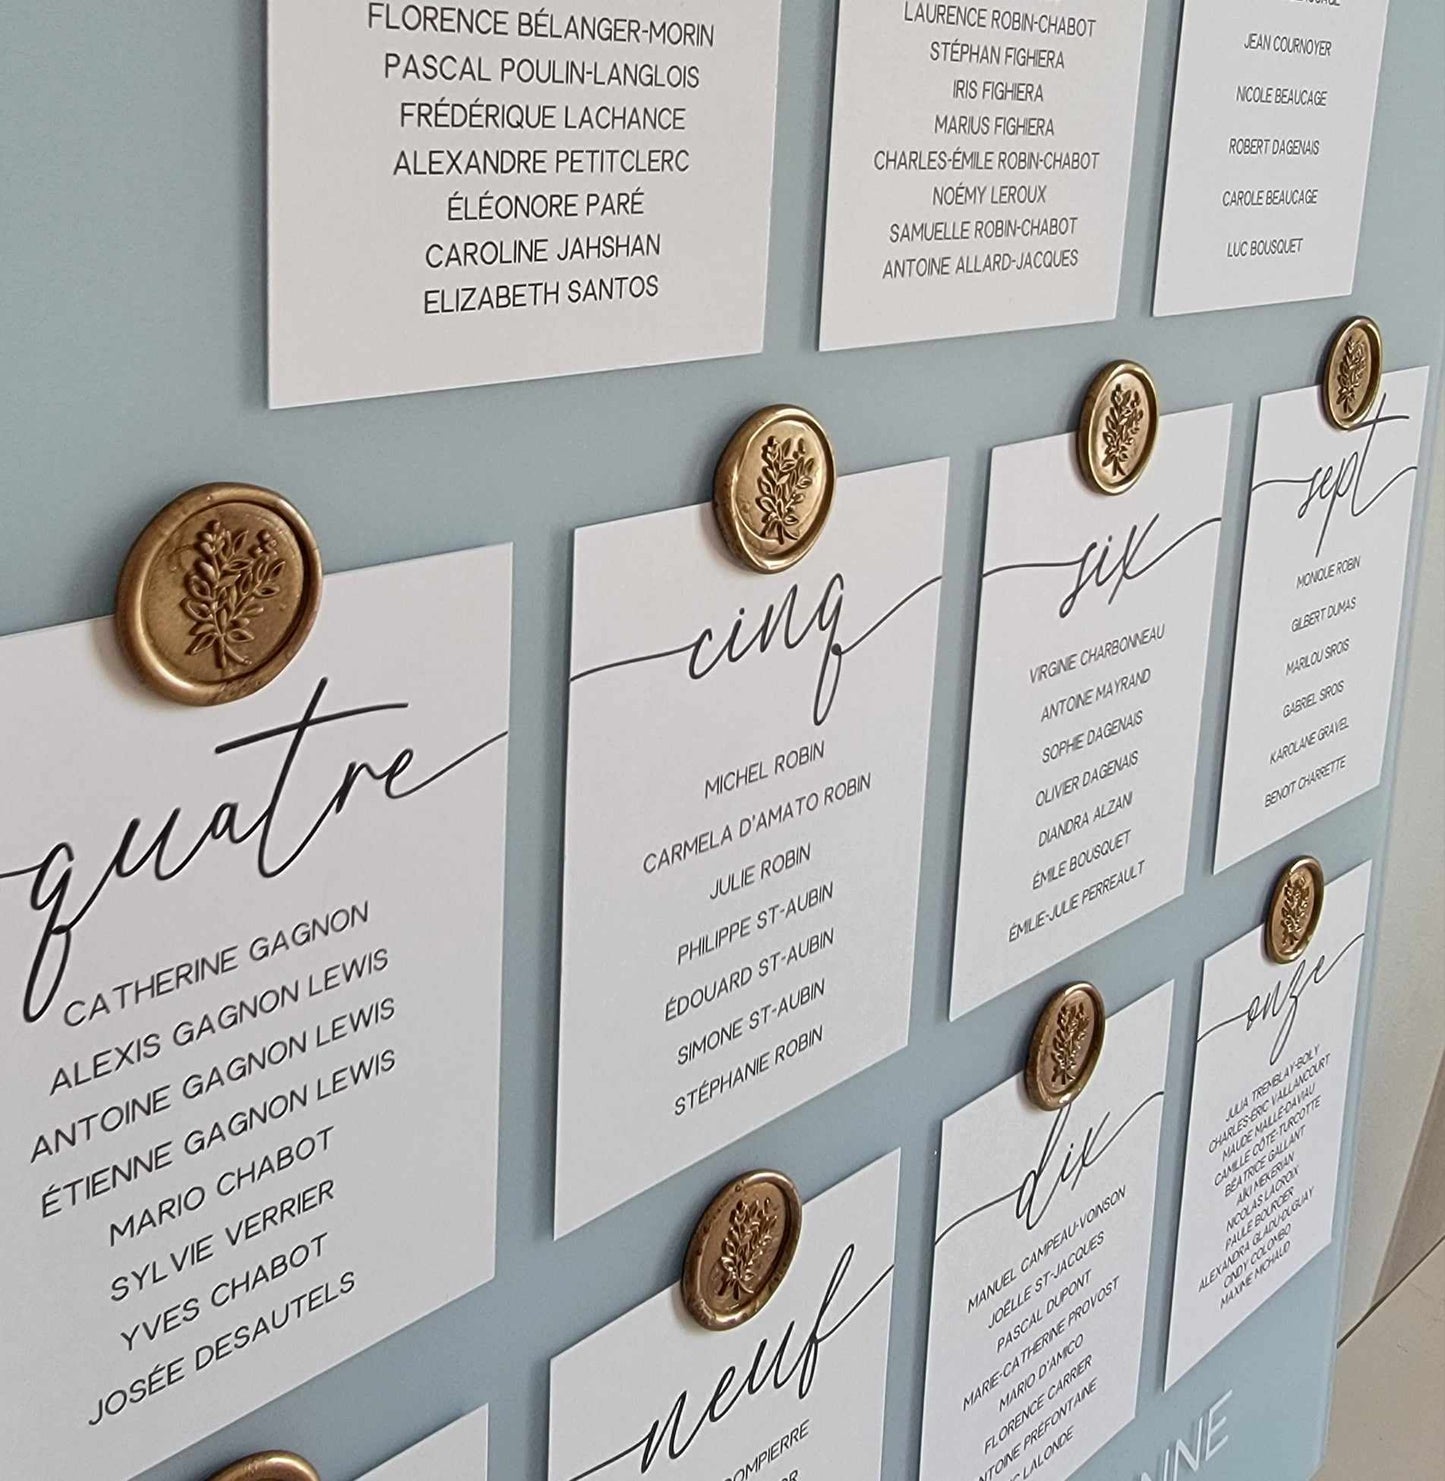 FLORENCE BÉLANGER-MORIN
PASCAL POULIN-LANGLOIS
FRÉDÉRIQUE LACHANCE
ALEXANDRE PETITCLERC
ÉLÉONORE PARÉ
CAROLINE JAHSHAN
ELIZABETH SANTOS
LAURENCE ROBIN-CHABOT
STÉPHAN FIGHIERA
IRIS FIGHIERA
MARIUS FIGHIERA
CHARLES-ÉMILE ROBIN-CHABOT
NOÉMY LEROUX
SAMUELLE ROBIN-CHABOT
ANTOINE ALLARD-JACQUES
JEAN COURNOYER
NICOLE BEAUCAGE
ROBERT DAGENAIS
CAROLE BEAUCAGE
LUC BOUSQUET
quatre
CATHERINE GAGNON
ALEXIS GAGNON LEWIS
ANTOINE GAGNON LEWIS
ÉTIENNE GAGNON LEWIS
MARIO CHABOT
SYLVIE VERRIER
YVES CHABOT
JOSÉE DESAUTELS
cinq
MICHEL ROBIN
CARMELA D'AMATO ROBIN
JULIE ROBIN
PHILIPPE ST-AUBIN
ÉDOUARD ST-AUBIN
SIMONE ST-AUBIN
STÉPHANIE ROBIN
six
VIRGINIE CHARBONNEAU
ANTOINE MAYRAND
SOPHIE DAGENAIS
OLIVIER DAGENAIS
DIANDRA ALZANI
ÉMILE BOUSQUET
ÉMILIE-JULIE PERREAULT
sept
MONIQUE ROBIN
GILBERT DUMAS
MARILOU SIROIS
GABRIEL SIROIS
KAROLANE GRAVEL
BENOIT CHARRETTE
neuf
dix
MANUEL CAMPEAU-VOINSON
JOËLLE ST-JACQUES
PASCAL DUPONT
MARIE-CATHERINE PROVOST
MARIO D'AMICO
FLORENCE CARRIER
PRÉFONTAINE
LALONDE
onze
JULIA TREMBLAY-BOLY
CHARLES-ÉRIC VAILLANCOURT
MAUDE MAILLÉ-DAVIAU
CAMILLE CÔTÉ-TURCOTTE
BÉATRICE GALLANT
AÏKI MEKERIAN
NICOLAS LACROIX
PAULE BOURCIER
ALEXANDRA GLADU-DUGUAY
CINDY COLOMBO
MAXINE MICHAUD